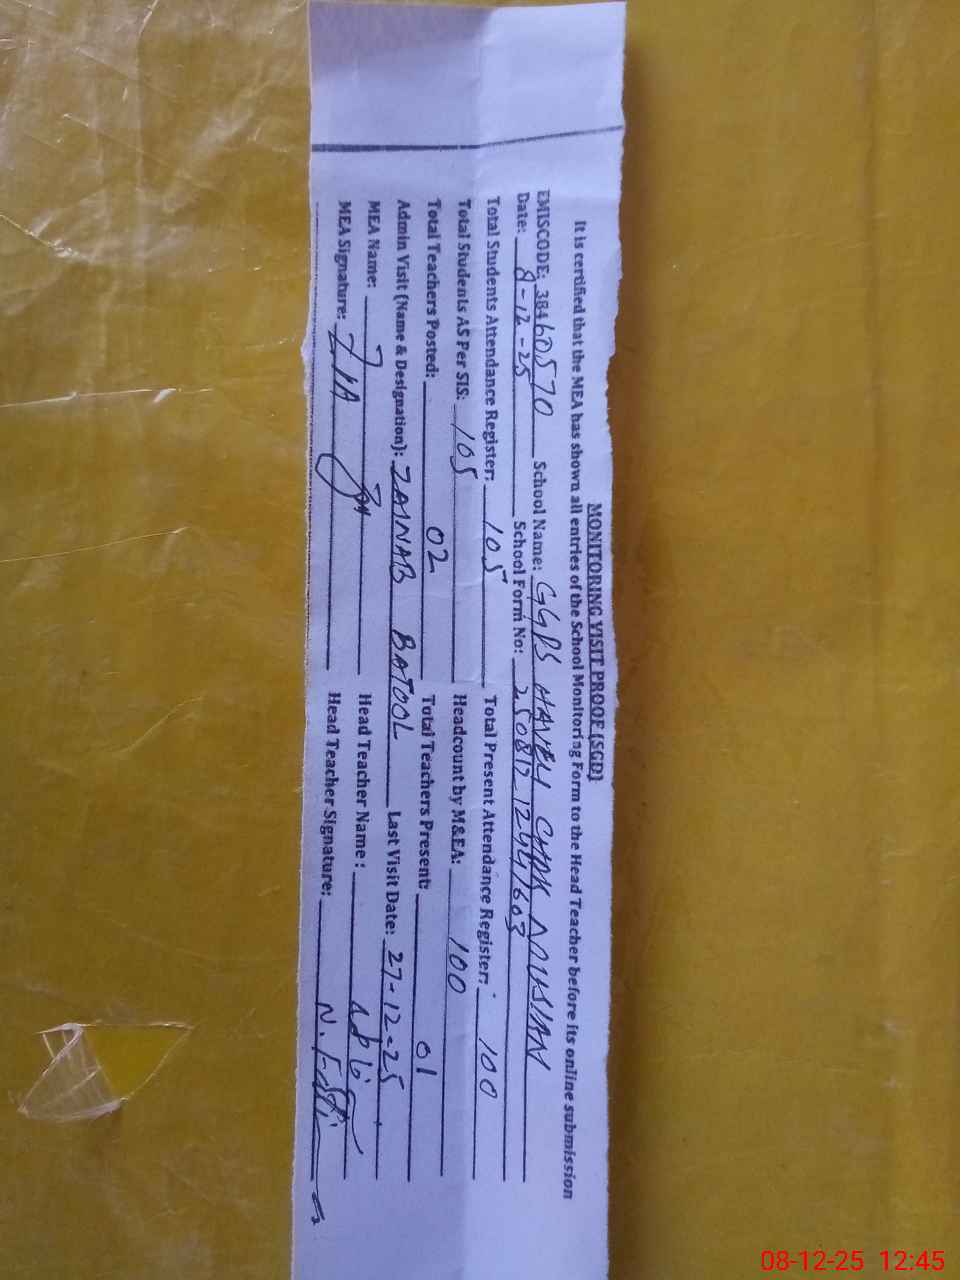 MONITORING VISIT PROOF (SGD)
It is certified that the MEA has shown all entries of the School Monitoring Form to the Head Teacher before its online submission
EMISCODE: 38460570 School Name: GGPS HAVELI CHAK MUSIAN
Date: 8-12-25 School Form No:
Total Students Attendance Register: 105 Total Present Attendance Register: 100
Total Students AS Per SIS: 105 Headcount by M&EA: 100
Total Teachers Posted: 02 Total Teachers Present: 01
Admin Visit (Name & Designation): ZAINAB BATOOL Last Visit Date: 27-12-25
MEA Name: Head Teacher Name:
MEA Signature: Head Teacher Signature:
08-12-25 12:45